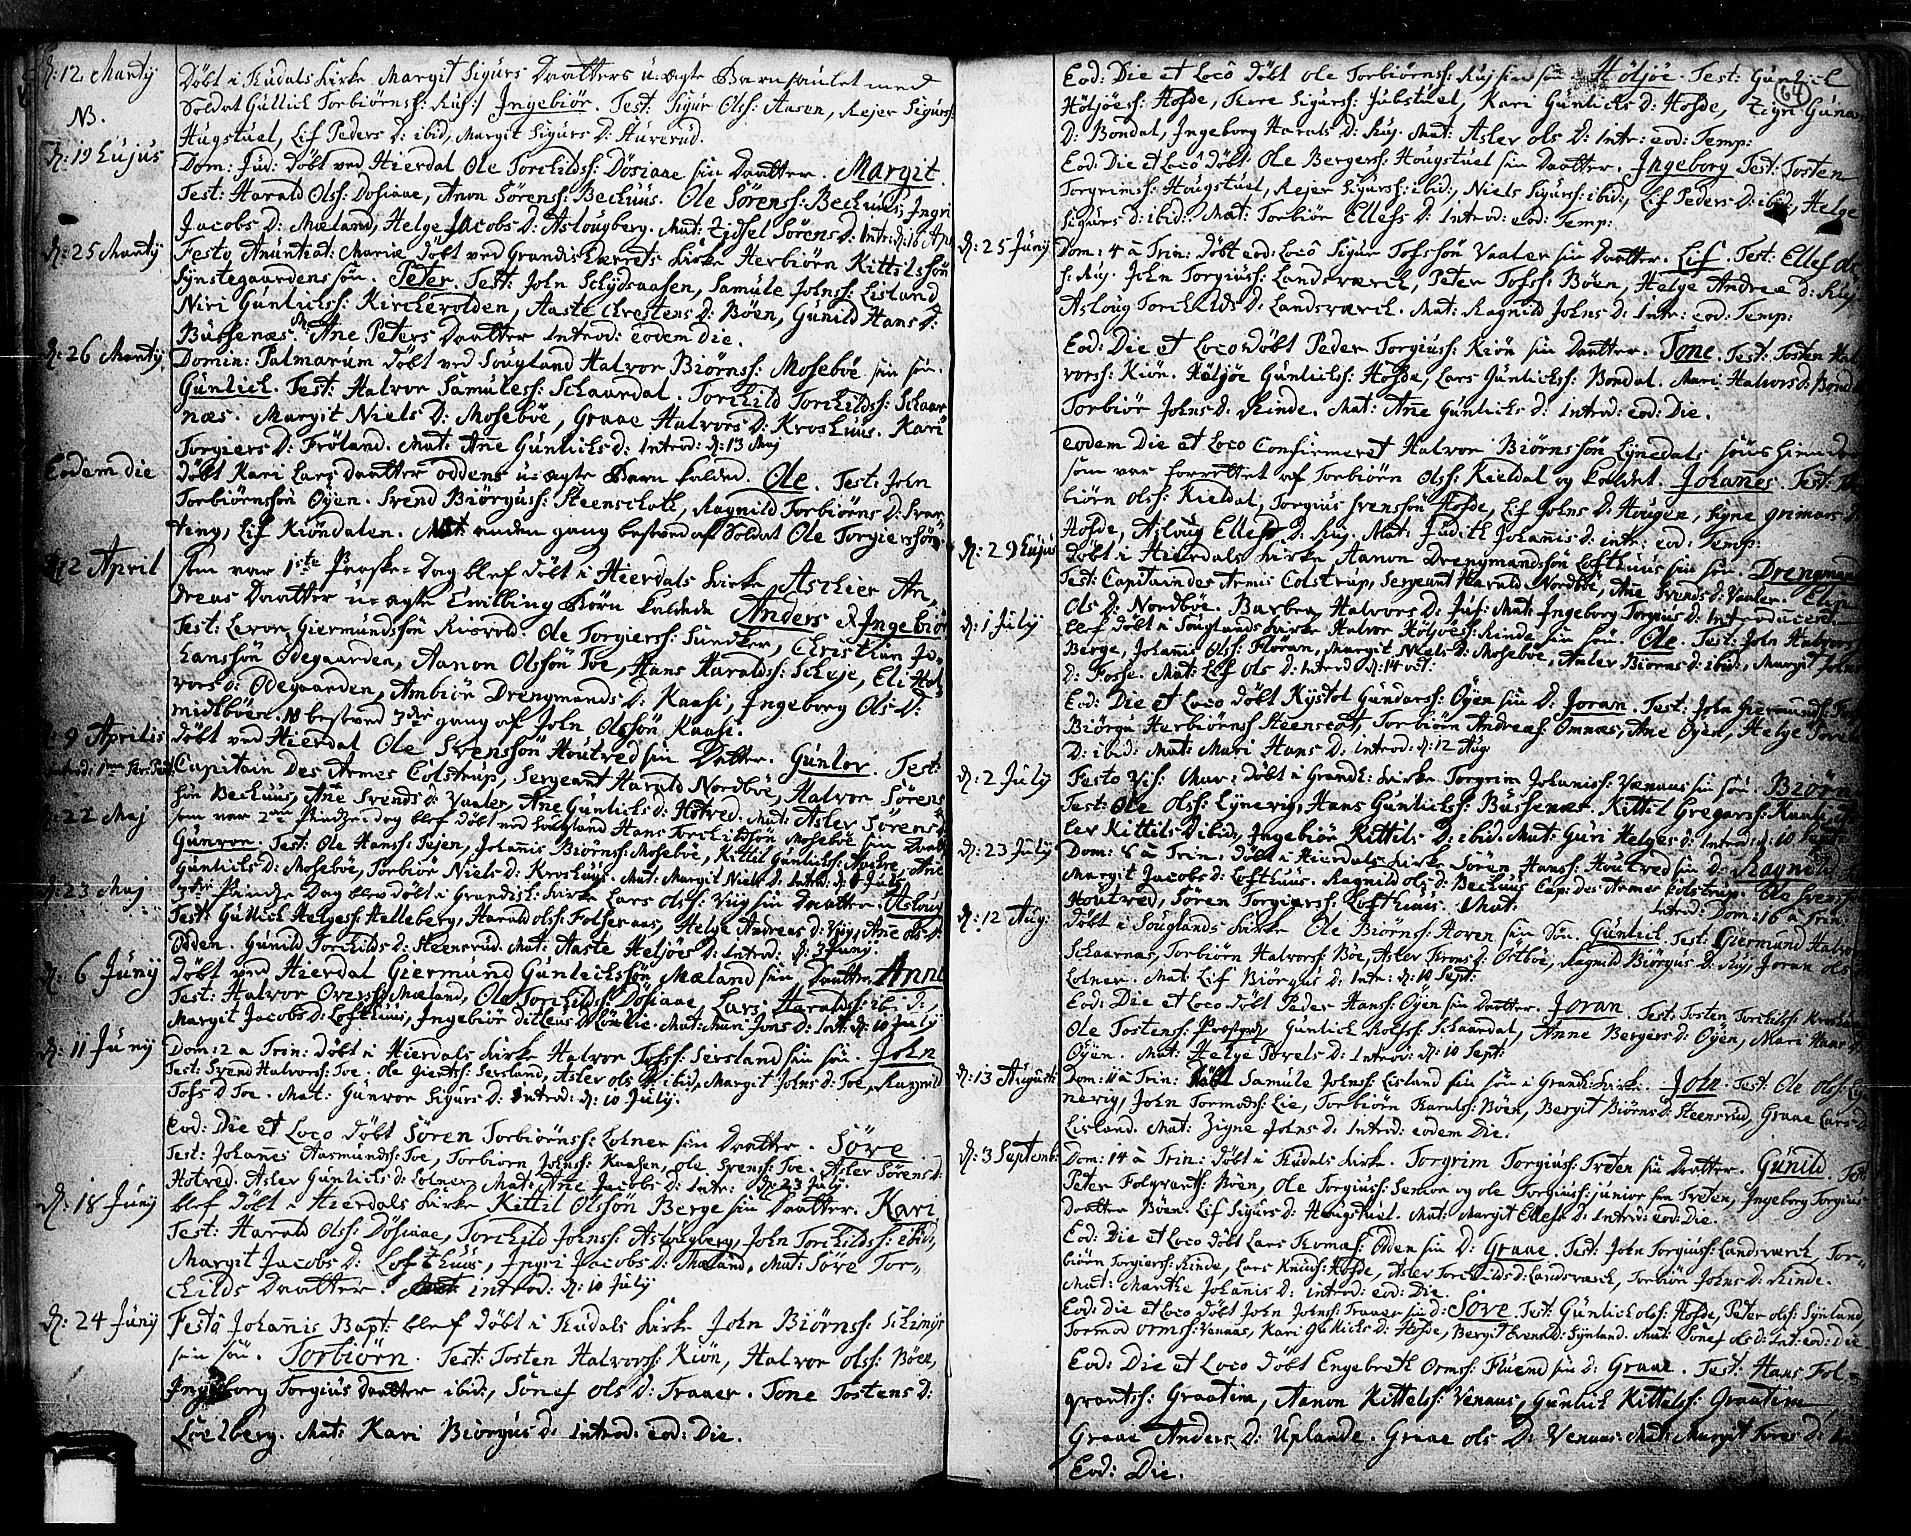 d: 12 Martij
Döbt i Tudals Kirke Margit Sigurs Daatters u-ægte Barn saulet med
Soldat Gullick Torbiörnss: Ruj:/ Ingebiör. Test: Sigur Olss: Aasen, Rejer Sigurss:
NB.
Hugstuel, Lif Peders D: ibid, Margit Sigurs D:
d: 19 Eujus
Dom: Jud: döbt ved Hierdal Ole Torchildss: Dösiaae sin Daatter. Margit.
Test: Harald Olss: Dosiaae, Anon Sörenss: Beckuus. Ole Sörenss: Beckuus, Ingri
Jacobs D: Mæland, Helge Jacobs D: Aslougberg. Mat: Zidsel Sörens D: Intr: d: 16 Apr
d: 25 Martij
Festo Anuntiat: Mariæ döbt ved Grandsherrets Kirke Herbiörn Kittilssön
Synstegaarden sön. Peter. Test: John Schydsaasen, Samule Johnss: Lisland
Niri Gunlichss: Kircherolden, Aaste Chrestens D: Böen, Gunild Hans D:
Bussenæs. Ane Peters Daatter Introd: eodem die.
d: 26 Martij
Domin: Palmarum döbt ved Sougland Halvor Biörnss: Moseböe sin sön.
Gunlich. Test: Halvor Samuless: Schaardal. Torchild Torchildss: Schaar
næs. Margit Niels D: Moseböe, Graae Halvors D: Kroshuus. Kari
Torgiers D: Fröland. Mat: Ane Gunlichs D: Introd: d: 13 Maj
Eodem die
döbt Kari Lars daatter oddens u-ægte Barn kalded. Ole. Test: John
Torbiörnssön Öyen. Svend Biörguss: Steenschoti, Ragnild Torbiörns D: Svar
teng, Lif Kiöndalen. Mat: anden gang besoved af Soldat Ole Torgierssön
d: 2 April
Som var 1ste Paaske-Dag blef döbt i Hierdals Kirke Aschier An-
dreas Daatter u-ægte Tvilling Börn kaldede Anders et Ingebiör
Test: Levor Giermundssön Risvold. Ole Torgierss: Sundker, Christian Jo-
hanssön Ödegaarden, Aanon Olssön Toe, Hans Haraldss: Scheje, Eli Hal
vors D: Ödegaarden, Ambiör Drengmands D: Kaasi, Ingeborg Ols D:
Midtböen. N besoved 3die gang af John Olssön Kaasi.
d: 9 Aprilis
döbt ved Hierdal Ole Svenssön Houtred sin Datter. Gunlor. Test:
Capitain des Armes Colstrup, Sergeant Harald Nordböe, Halvor Sörens
sön Beckuus, Ane Svends D: Vaaler, Ane Gunlichs D: Hotved. Mat: Asler Sörens D:
d: 22 Maj
som var 2den Pindze-dag blef döbt ved Sougland Hans Torchildssön Moseböe sin Daatter
Gunvor. Test: Ole Hanss: Tejen, Johannis Biörnss: Moseböe, Kittil Gunlichss:
Gunlichs D: Moseböe, Torbiör Niels D: Kroshuus. Mat: Margit Niels D: Introd: d: 9 July
d: 23 Maj
3die Pindze Dag blev döbt i Grandsh: Kirke Lars Olss: Vig sin Daatter. Aslowg
Test: Gullick Helgess: Helleberg, Harald Olss: Folsenæs, Helge Andreas D: Viig, Ane Ols D:
Odden. Gunild Torchilds D: Steensrud. Mat: Aaste Heljöes D: Introd: d: 3 Junij
d: 6 Junij
döbt ved Hierdal Giermund Gunlichssön Mæland sin Daatter Anne
Test: Halvor Overs: Mæland, Ole Torchildss: Dösiaae, Lars Haraldss: ibid:
Margit Jacobs D: Lofthuus, Ingebiör Mat: Mari Jons D: Intr: d: 10 July
d: 11 Junij
Dom: 2 a Trin: döbt i Hierdals Kirke Halvor Tofss: Sersland sin sön. John
Test: Svend Halvorss: Toe. Ole Giertss: Sersland, Asler Ols D: ibid, Margit Johns D: Toe, Ragnild
Tofs D Toe. Mat: Gunvor Sigurs D: Introd: d: 10 July.
Eod: Die et Loco döbt Sören Torbiörnss: Lolner sin Daatter. Söve
Test: Johanes Aasmundss: Toe, Torbiörn Johnss: Kaasen, Ole Svenss: Toe. Asler Sörens D:
Hotved. Asler Gunlichs D: Lolner. Mat: Ane Jacobs D: Intr: d: 23 July
d: 18 Junij
blef döbt i Hierdals Kirke Kittil Olssön Berge sin Daatter. Kari
Test: Harald Olss: Dösiaae, Torchild Johnss: Aslougberg, John Torchildss: ibid,
Margit Jacobs D: Lofthuus, Ingri Jacobs D: Mæland, Mat: Söve Tor-
childs Daatter. introd: d: 10 July
d: 24 Junij
Festo Johannis Bapt: blef döbt i Tudals Kirke John Biörnss: Schings
sin sön. Torbiörn. Test: Tosten Halvorss: Kiön, Halvor Olss: Böen,
Ingeborg Torgius daatter ibid:, Sönef Ols D: Traaer. Tone Tostens D:
Loelberg. Mat: Kari Biörgus D: Introd: eod: Die.
64
Eod: Die et Loco döbt Ole Torbiörnss: Ruj sin sön Höljöe. Test: Gunlich
Höljöess: Hofde, Tore Sigurss: Jubstuel, Kari Gunlichs D: Hofde, Zigri Gunars
D: Bondal, Ingeborg Haralds D: Ruj. Mat: Asler Ols D: Intr: eod: Temp:
Eod: Die et Loco döbt Ole Bergerss: Hougstuel sin Daatter. Ingeborg Test: Tosten
Torgrimss: Hougstuel, Rejer Sigurss: ibid:, Niels Sigurss: ibid:, Lif Peders D: ibid, Helge
Sigurs D: ibid: Mat: Torbiör Ellefs D: Introd: eod: Temp:
d: 25 Junij
Dom: 4 a Trin: döbt eod: Loco Sigur Tofssön Vaaler sin Daatter. Lif. Test: Ellef Ols
s: Ruj. John Torgiuss: Landsværck, Peter Tofss: Böen, Helge Andrea D: Ruj
Asloug Torchilds D: Landsværck. Mat: Ragnild Johns D: Intr: eod: Temp:
Eod: Die et Loco döbt Peder Torgiuss: Kiön sin Daatter. Tone. Test: Tosten Hal
vorss: Kiön. Höljöe Gunlichss: Hofde, Lars Gunlichss: Bondal. Mari Halvors D: Bondal
Torbiör Johns D: Rinde. Mat: Ane Gunlichs D: Introd: eod: Die.
eodem Die et Loco Confirmeret Halvor Biörnssön Lynedals
som var forrettet af Torbiörn Olss: Kieldal og kaldet. Johannes. Test: Tor
biörn Olss: Kieldal, Torgius Svenssön Hofde, Lif Johns D: Hougen, Signe Grimars D:
Hofde, Asloug Ellefs D: Ruj. Mat: Judith Johannis D: intr: eod: Temp:
d: 29 Eujus
döbt i Hierdals Kirke, Aanon Drengmandssön Lofthuus sin sön. Drengmand
Test: Capitain des Armis Colstrup, Sergeant Harald Nordböe, Ane Svends D: Vaaler.
Ols D: Nordböe. Barbra Halvors D: Mat: Ingeborg Torgius D: Introduceret
d: 1 July
blef döbt i Souglands Kirke Halvor Höljöess: Rinde sin sön. Ole. Test: John Halvorss:
Berge, Johannis Olss: Floran, Margit Niels D: Moseböe, Asler Biörns D: ibid, Margit Johns
D: Fosse. Mat: Lif Ols D: Introd d: 14 oct:
Eod: Die et Loco döbt Kystol Gundarss: Öyen sin D: Joran. Test: John Giermundss:
Biörgu Herbiörnss: Steenscot, Torbiörn Andreass: Omnæs, Ane Öyen, Helge
D: ibid: Mat: Mari Hans D: Introd: d: 12 Aug:
d: 2 July
Festo Vis: Mar: döbt i Grandsh: Kirke Torgrim Johanniss: Vænaas sin sön Biörn
Test: Ole Olss: Lynevig, Hans Gunlichss: Bussenæs. Kittil Gregarss:
Kittils D ibid, Ingebiör Kittils D: ibid: Mat: Guri Helges D: Introd: d: 10 Sept:
d: 23 July
Dom: 8 a Trin: döbt i Hierdals Kirke Sören Hanss: Houtred sin D: Ragnild
Margit Jacobs D: Lofthuus. Ragnild Ols D: Beckuus Cap: des Armes Colstrup. Ole Svenssön
Houtred, Sören Torgierss: Lofthuus. Mat: Introd: Dom: 16 a Trin:
d: 12 Aug:
döbt i Souglands Kirke Ole Biörnss: Horen sin Sön. Gunlich. Test: Giermund Halvors
Schaarnæs, Torbiörn Halvorss: Böe, Asler Trons D: Östböe, Ragnild Biörgus D: Ruj, Joran Ols D:
Lolner. Mat: Lif Biörgus D: Intr: d: 10 Sept:
Eod: Die et Loco döbt Peder Hanss: Öyen sin Daatter. Joran. Test: Tosten Torchilss: Kroshuus
Ole Tostenss: Gunlich Rolfss: Schaardal, Anne Bergers D: Öyen, Mari Hans D:
Öyen. Mat: Helge Povels D: Introd: d: 10 Sept:
d: 13 Augusti
Dom: 11 a Trin: Döbt Samule Johnss: Lisland sin sön i Grandsh: Kirke. John. Test: Ole Olss: Ly
nevig, John Tormodss: Lie, Torbiörn Haralss: Böen, Bergit Biörns D: Steensrud, Graae Lars D:
Lisland. Mat: Zigne Johns D: Introd: eodem Die.
d: 3 Septemb:
Dom: 14 a Trin: döbt i Tudals Kirke. Torgrim Torgiuss: Treten sin Daatter. Gunild. Test:
Peter Folqvarss: Böen, Ole Torgiuss: Senior og Ole Torgiuss: junior fra Treten, Ingeborg Torgius
daatter Böen. Lif Sigurs D: Haugstuel. Mat: Margit Ellefs D: Introd: eod: Die.
Eod: Die et Loco döbt Lars Tomass: Odden sin D: Graae. Test: John Torgiuss: Landsværck, Tor-
biörn Torgierss: Rinde, Lars Knuss: Hofde, Asler Torchilds D: Landsværck, Torbiör Johns D: Rinde.
Mat: Marthe Johannis D: introd: eod: Die.
Eod: Die et Loco döbt John Johnss: Traaer sin D: Söve. Test: Gunlich Olss: Hofde, Peter Olss: Synland,
Tormod Ormss: Venaas, Kari Gullichs D: Hofde, Bergit Evens D: Synland. Mat: Sönef Ols D: Int: eod: Die
Eod: Die et Loco döbt Engebreth Ormss: Fluend sin D: Graae. Test: Hans Fol-
qvartss: Graatim, Aanon Kittelss: Venaas, Gunlich Kittelss: Graatim
Graae Anders D: Uplande. Graae Ols D: Venaas. Mat: Margit Tores D:
Eod: Die.